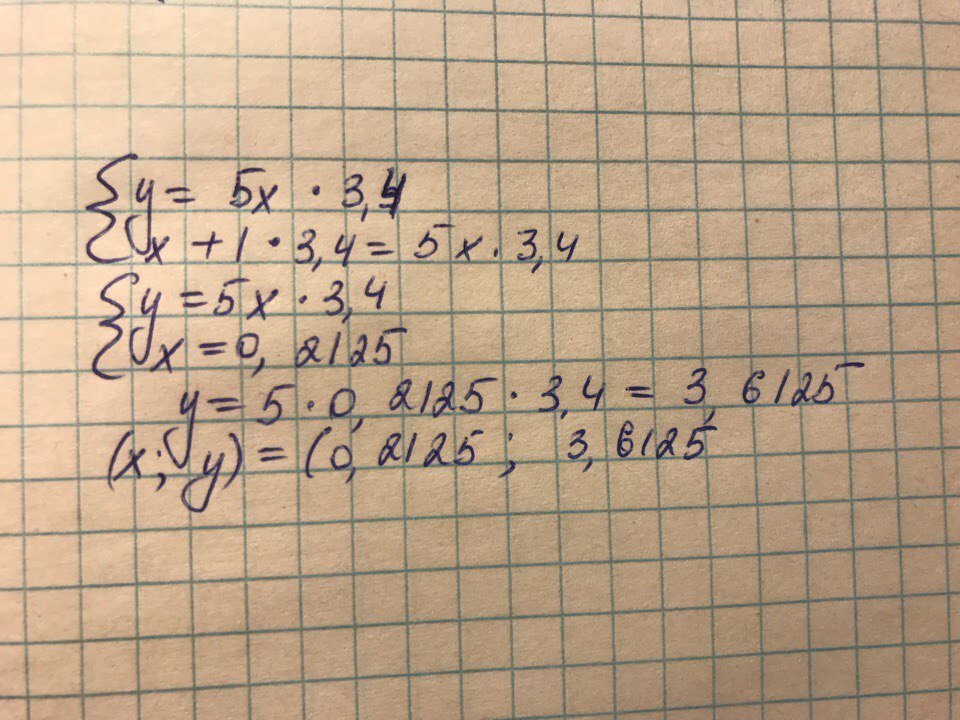 {y = 5x · 3,4
x + 1 · 3,4 = 5x · 3,4
{y = 5x · 3,4
x = 0, 2125
y = 5 · 0, 2125 · 3,4 = 3, 6125
(x; y) = (0, 2125 ; 3, 6125